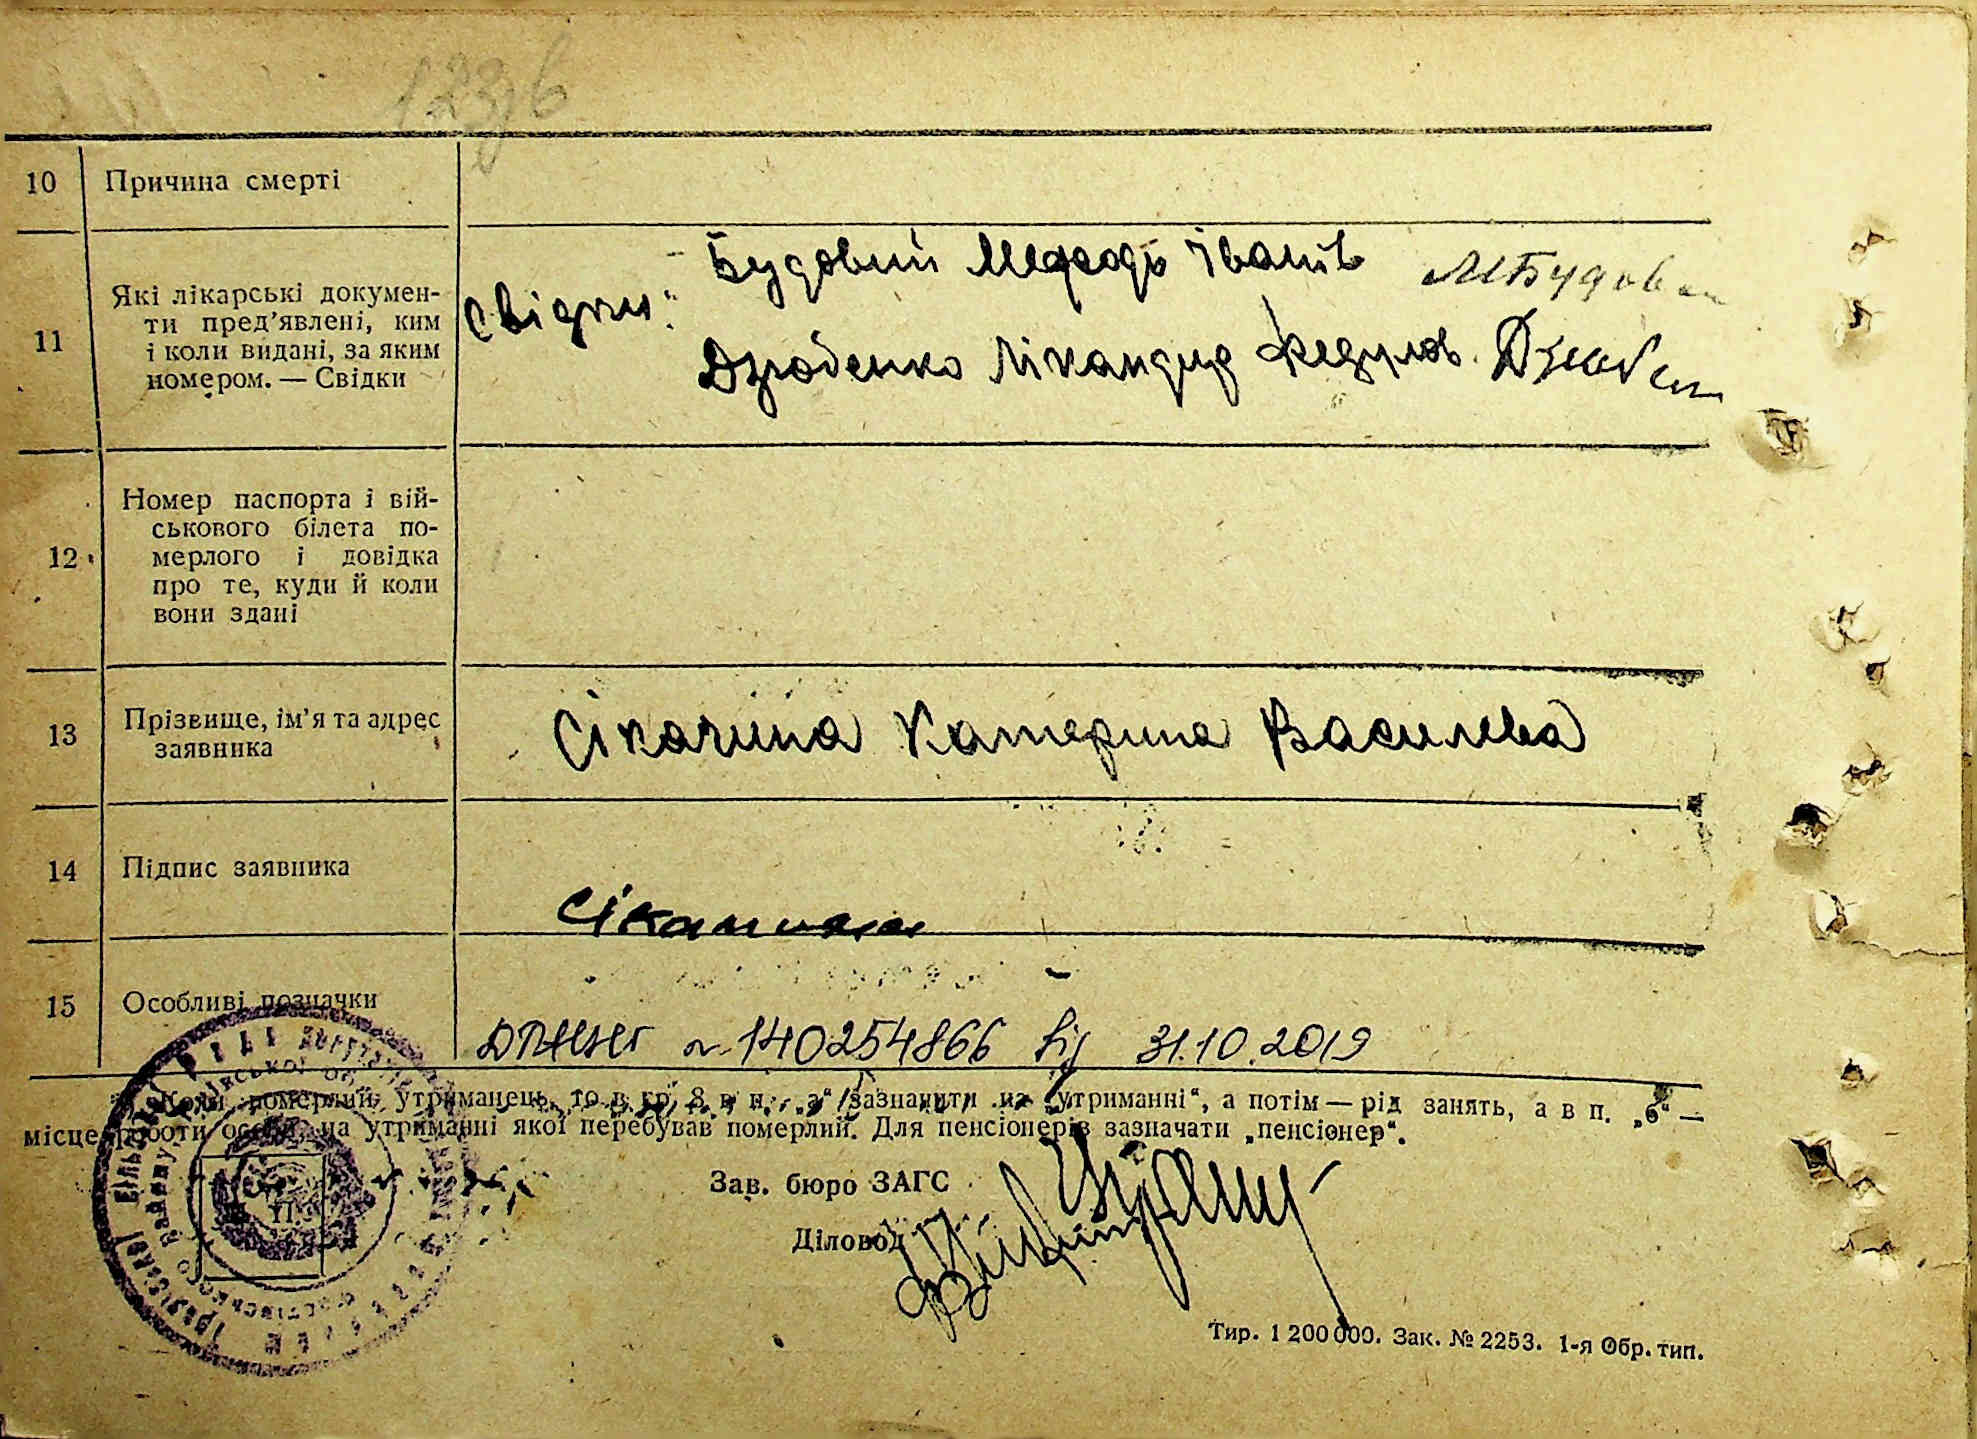 1236
10 Причина смерті
11 Які лікарські докумен-
ти пред'явлені, ким
і коли видані, за яким
номером. — Свідки
Свідки:
Будовий Мефодь Іванів МБудов
Дзюбенко Нікандир Федулов. Дзюбен
12 Номер паспорта і вій-
ськового білета по-
мерлого і довідка
про те, куди й коли
вони здані
13 Прізвище, ім'я та адрес
заявника
Сікачина Катерина Василева
14 Підпис заявника
15 Особливі позначки
№ 140254866 від 31.10.2019
Коли померлий утриманець, то в гр. 8 в п. „а“ зазначити на „утриманні“, а потім — рід занять, а в п. „б“ —
місце роботи особи, на утриманні якої перебував померлий. Для пенсіонерів зазначати „пенсіонер“.
Зав. бюро ЗАГС
Діловод
Тир. 1 200 000. Зак. № 2253. 1-я Обр. тип.